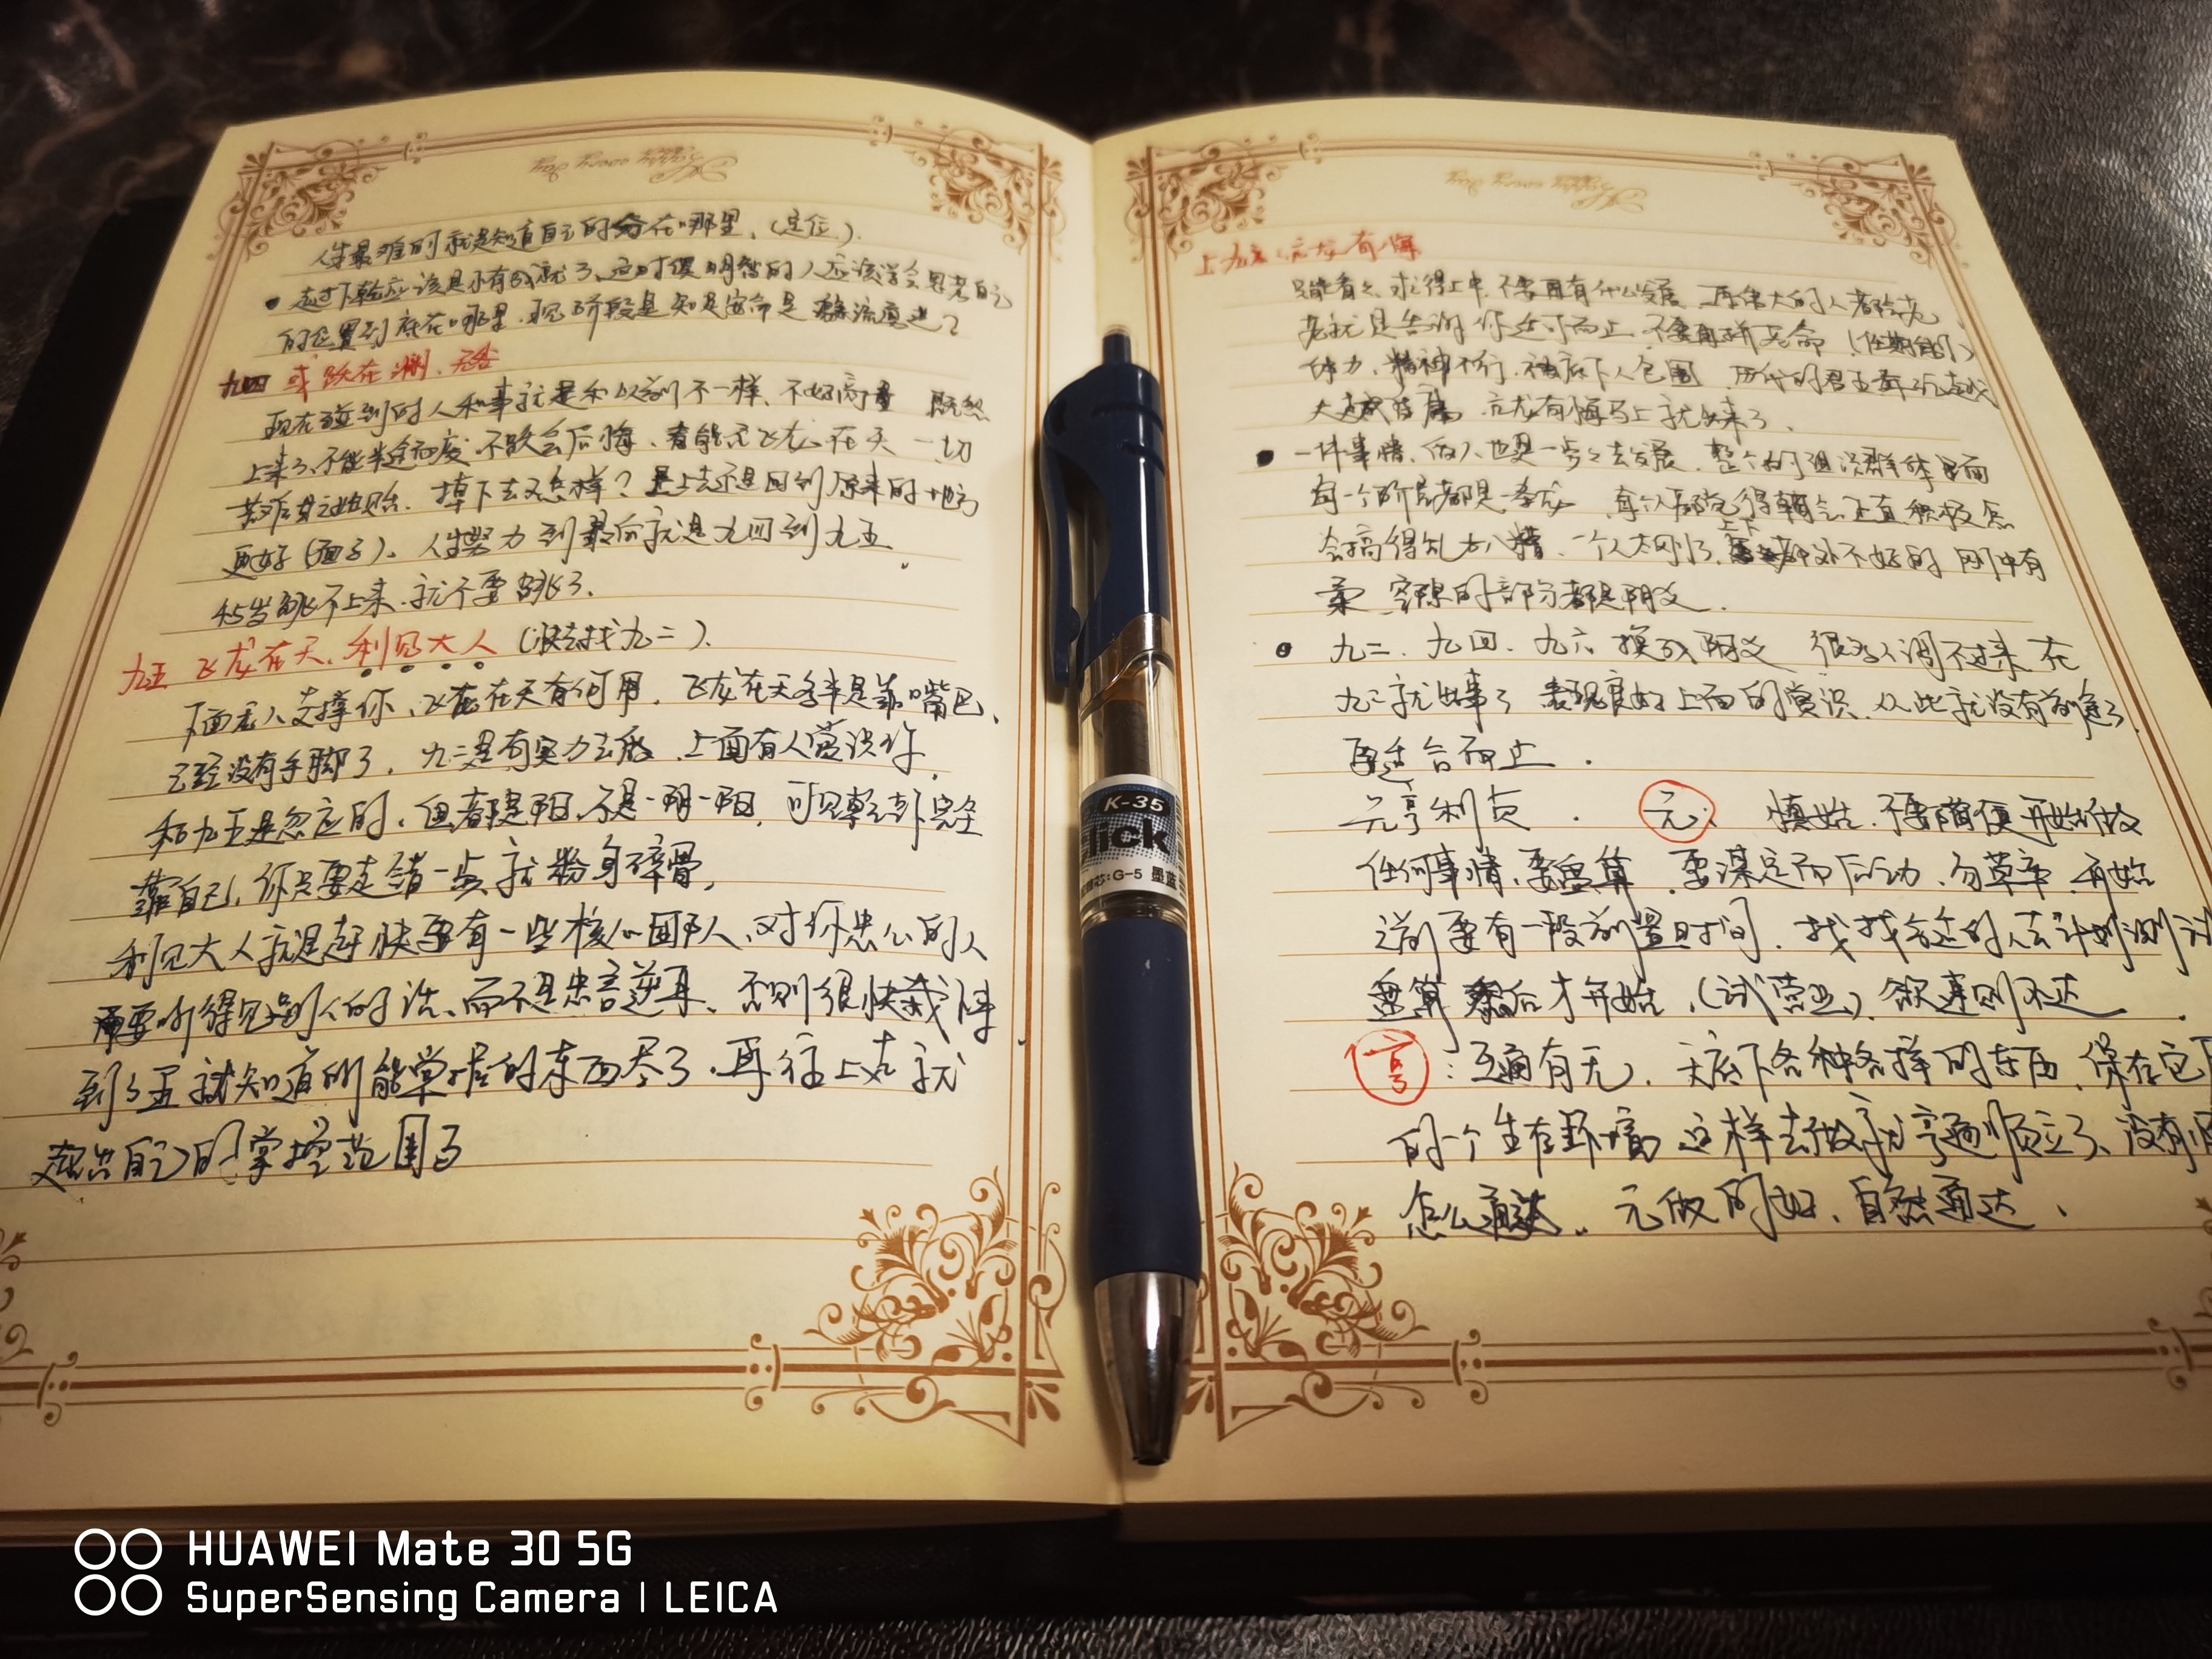 人生最难的就是知道自己的分在哪里、(定位)
走过下乾应该是小有成就了、这时候明智的人应该学会思考自己
的位置到底在哪里、现阶段是知足安命是急流勇进?
九四 或跃在渊、无咎
现在碰到的人和事就是和以前不一样、不好高 既然
上来了、不能半途而废 不跃会后悔、看能否飞龙在天 一切
掉下去又怎样? 是上去还是回到原来的地方
更好(面子)、人生努力到最后就是九四到九五.
45岁跳不上来、就不要跳了、
九五 飞龙在天、利见大人 (快去找九二)、
下面无人支撑你、飞龙在天有何用、飞龙在天多半是靠嘴巴、
已经没有手脚了、九二是有实力去做、上面有人赏识你、
和九五是忽应的、但都是阳、不是一阴一阳、可见乾卦完全
靠自己、你只要走错一点就粉身碎骨,
利见大人就是赶快要有一些核心团队、对你忠心的人
要听得见别人的话、而不是忠言逆耳、否则很快栽
到了五就知道所能掌握的东西尽了、再往上走就
超出自己的掌控范围了
上九: 亢龙有悔
只能看看、求得上中、不要再有什么发展、再伟大的人都会老
老就是告诉你适可而止、不要再拼老命(任期制)
体力、精神不行、被底下人包围 历代的君王
亢龙有悔马上就出来了、
一件事情、做人也是一步步去发展、整个的组织群体里面
每一个阶层都是一条龙 每个人都觉得朝气正直积极怎
会搞得乱七八糟、一个人太刚了、上下都处不好的 刚中有
柔 空隙的部分都是阴爻、
九二、九四、九六 换成阴爻 很多人调不过来 在
九二就出事了 表现良好上面的赏识、从此就没有前途了
要适合而止 .
元亨利贞 . 元: 慎始、不要随便开始做
任何事情、要盘算、要谋定而后动、勿草率、开始
之前要有一段前置时间、找找合适的人去计划测试
盘算 然后才开始、(试营业)、欲速则不达 .
亨: 互通有无、天底下各种各样的东西、保存它
的一个生存环境 这样去做就亨通顺应了、没有
怎么通达、元做的好、自然通达、
K-35
lick
芯:G-5 墨蓝
HUAWEI Mate 30 5G
SuperSensing Camera | LEICA